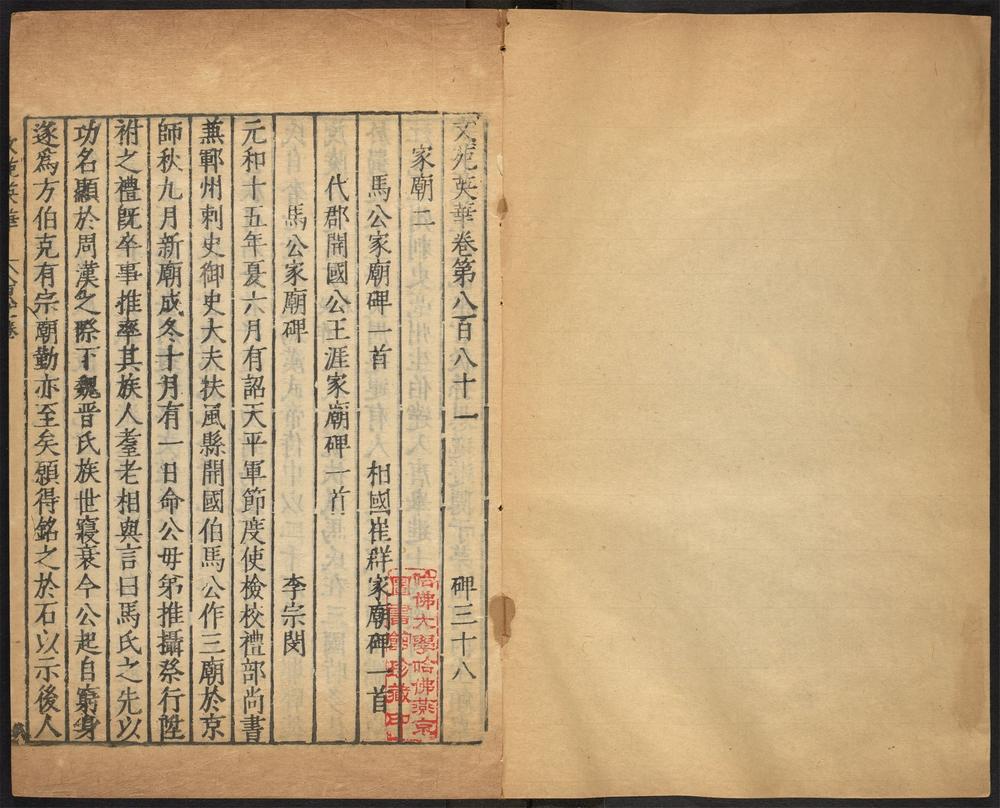 文苑英華卷第八百八十一 碑三十八
家廟二
馬公家廟碑一首 相國崔群家廟碑一首
代郡開國公王涯家廟碑一首
馬公家廟碑 李宗閔
元和十五年夏六月有詔天平軍節度使檢校禮部尚書
兼鄆州刺史御史大夫扶風縣開國伯馬公作三廟於京
師秋九月新廟成冬十月有一日命公毋弟推攝祭行陞
祔之禮旣卒事推率其族人耋老相與言曰馬氏之先以
功名顯於周漢之際下魏晋氏族世寖衰今公起自窮身
遂爲方伯克有宗廟勤亦至矣願得銘之於石以示後人
哈佛大學哈佛燕京
圖書館珍藏印